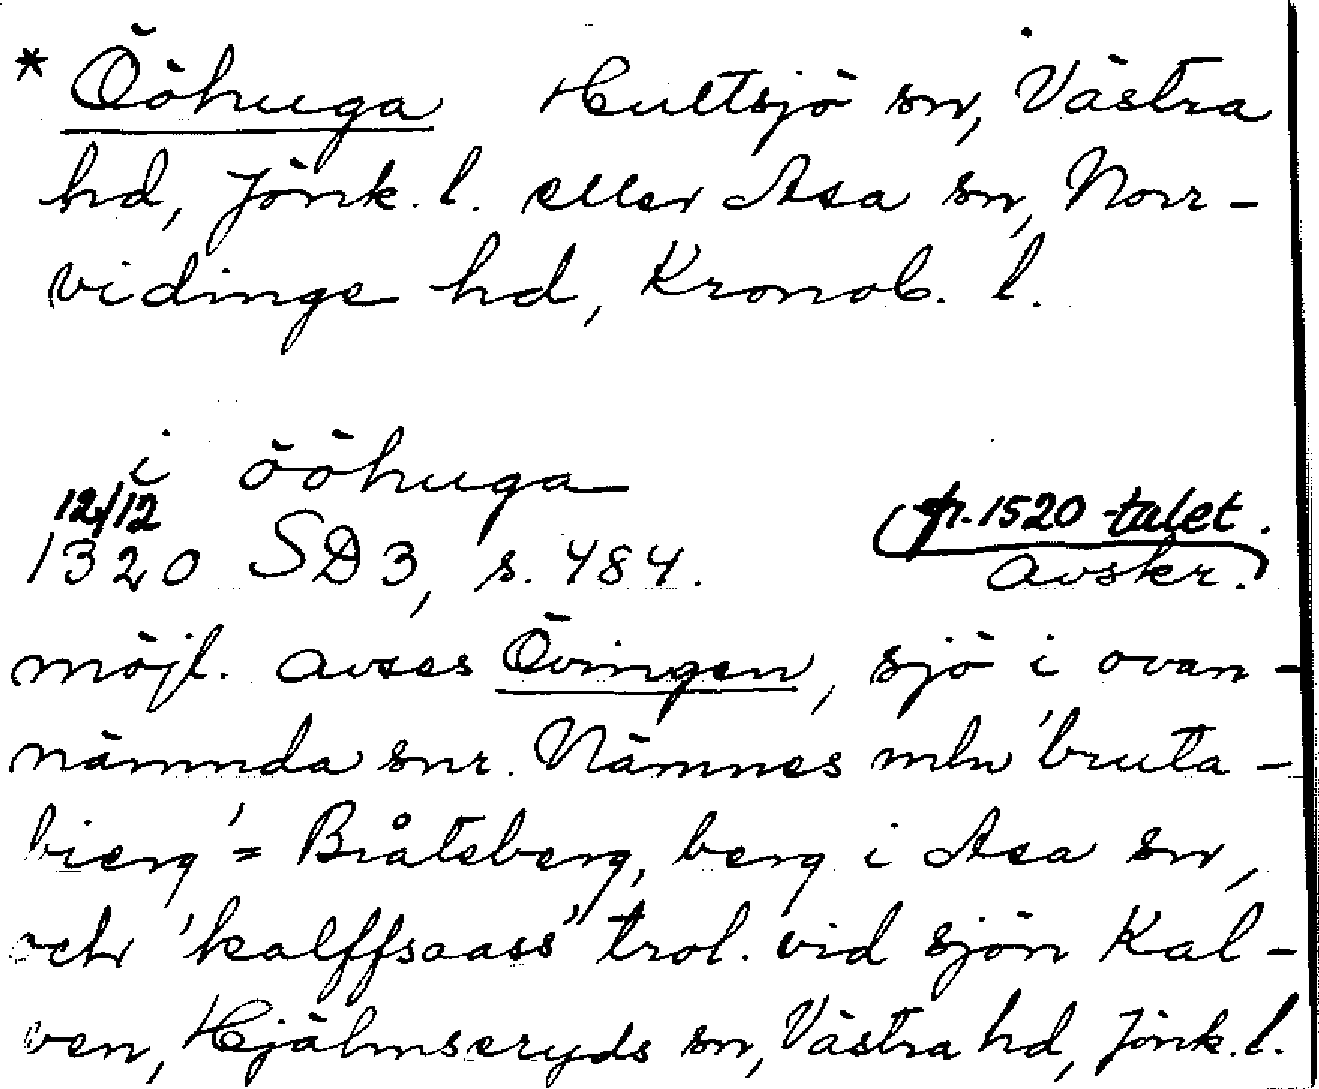 * Ööhuga Hultsjö sn, Västra
hd, Jönk. l. eller Asa sn, Norr-
vidinge hd, Kronob. l.
i ööhuga
12/12
1320 SD3, s. 484. (fr. 1520-talet.
avskr.)
möjl. avses Övingen, sjö i ovan-
nämnda snr. Nämnes mln 'bruta-
bierg' = Bråtsberg, berg i Asa sn,
och 'kalffsaass' trol. vid sjön Kal-
ven, Hjälmseryds sn, Västra hd, Jönk. l.